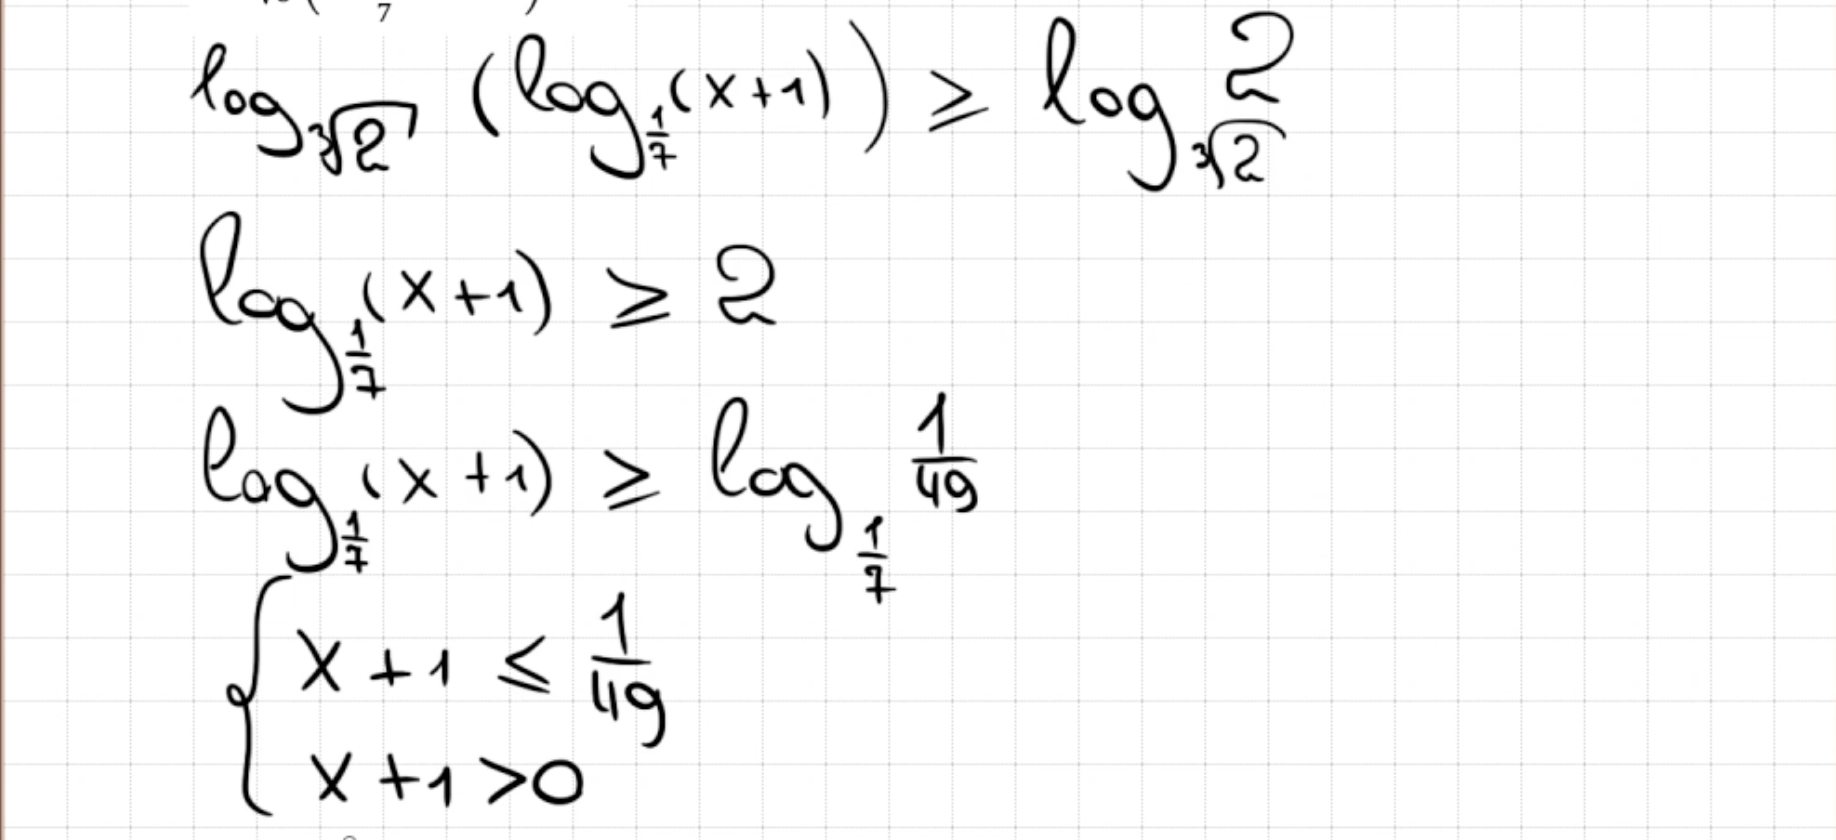 7
log_∛2 (log_1/7 (x+1)) ≥ log_∛2 2
log_1/7 (x+1) ≥ 2
log_1/7 (x+1) ≥ log_1/7 1/49
{ x+1 ≤ 1/49
x+1 >0